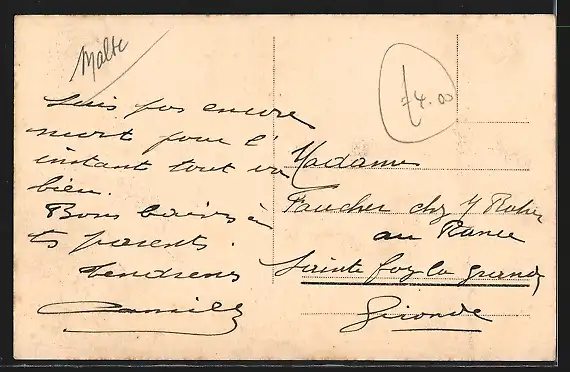 Malte
£4.00
Suis pas encore
mort pour l'
instant tout va
bien.
Bons baisers à
ts parents.
Tendresses
Camille
Madame
Faucher chez Mr
au Rance
Sainte foy la grande
Gironde